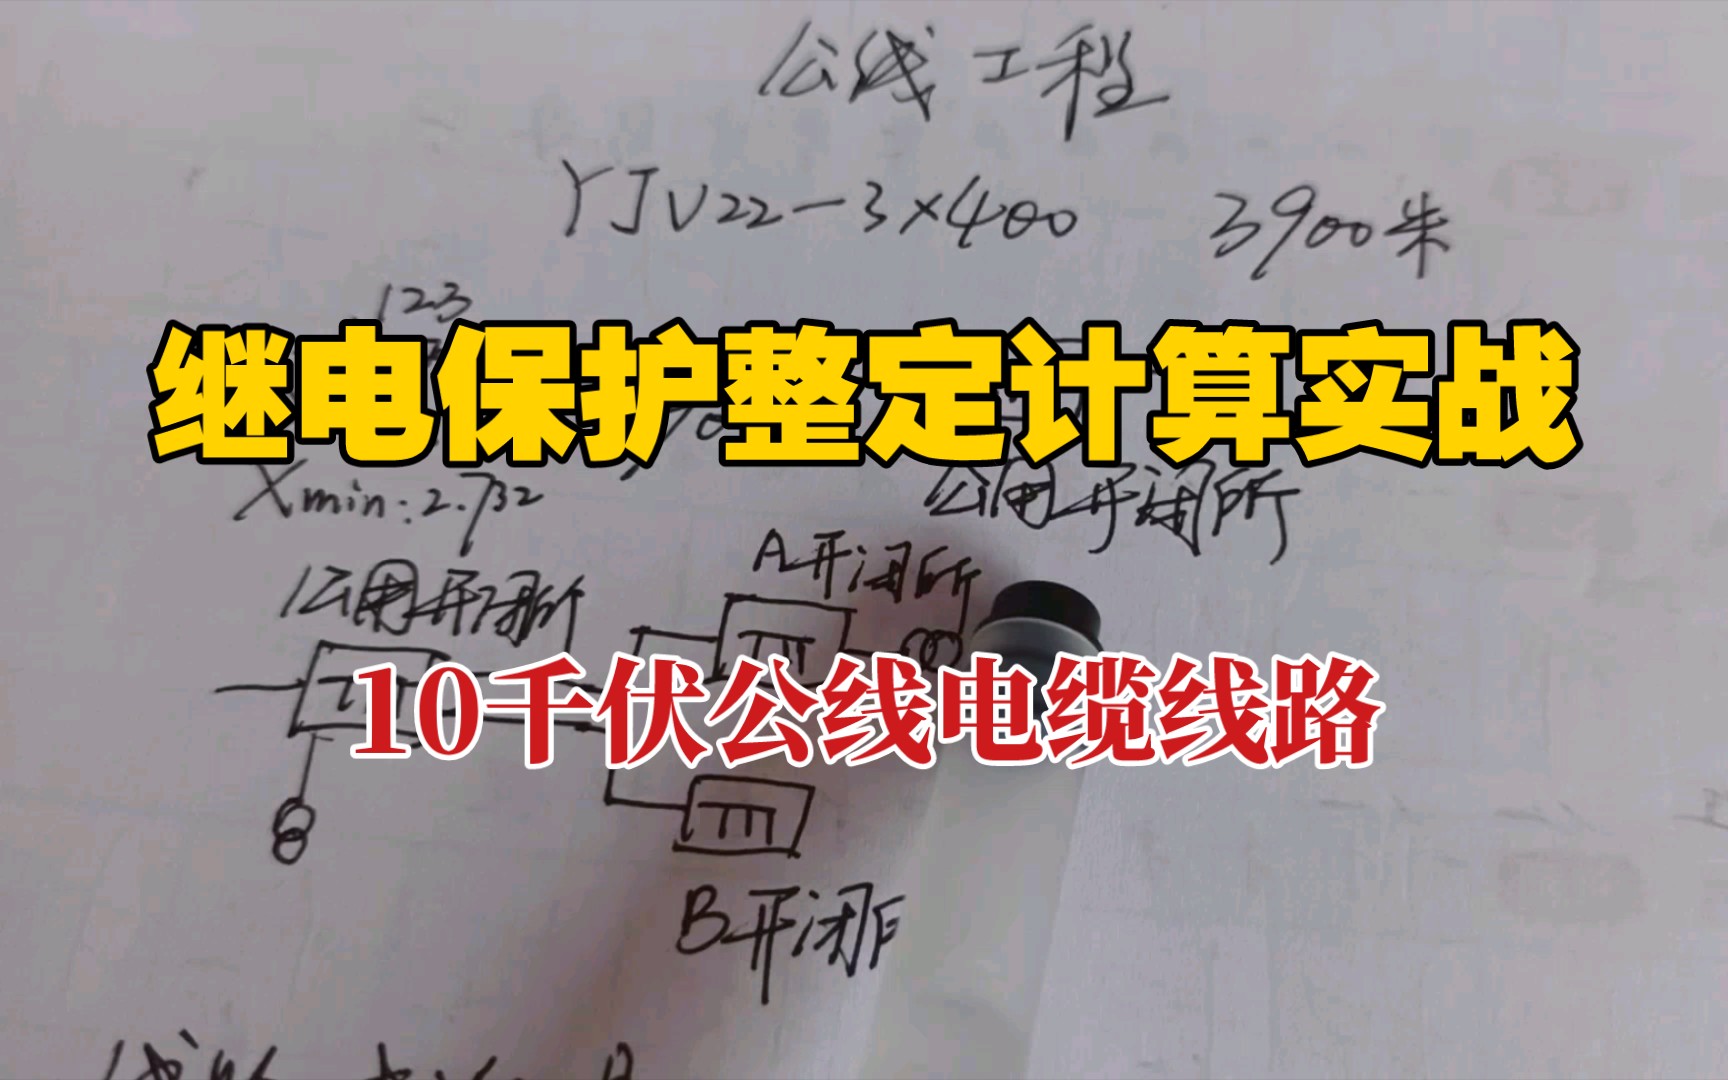 公线工程
YJV22-3×400 3900米
123
继电保护整定计算实战
Xmin:2.732
公用开闭所
A开闭所
公用开闭所
10千伏公线电缆线路
B开闭